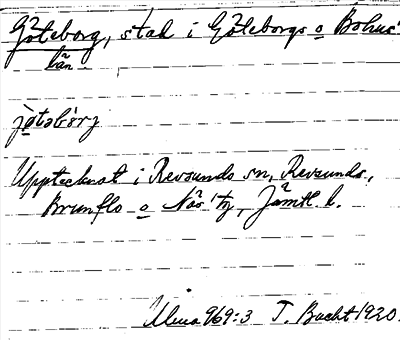 Göteborg, stad i Göteborgs o Bohus
län.
jøtəbòrj
Upptecknat i Revsunds sn, Revsunds,
Brunflo o Näs' tg, Jämtl. l.
969:3 T. Bucht 1920.